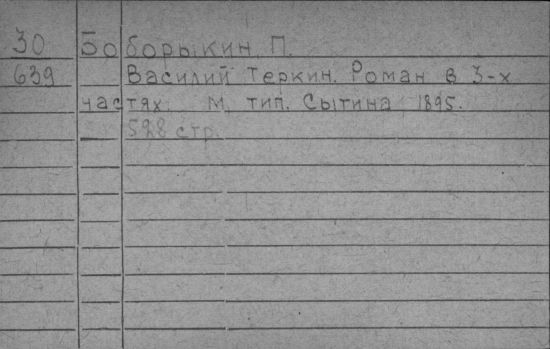 30 Боборыкин П.
639 Василий Теркин. Роман в 3-х
частях. М. тип. Сытина 1895.
528 стр.